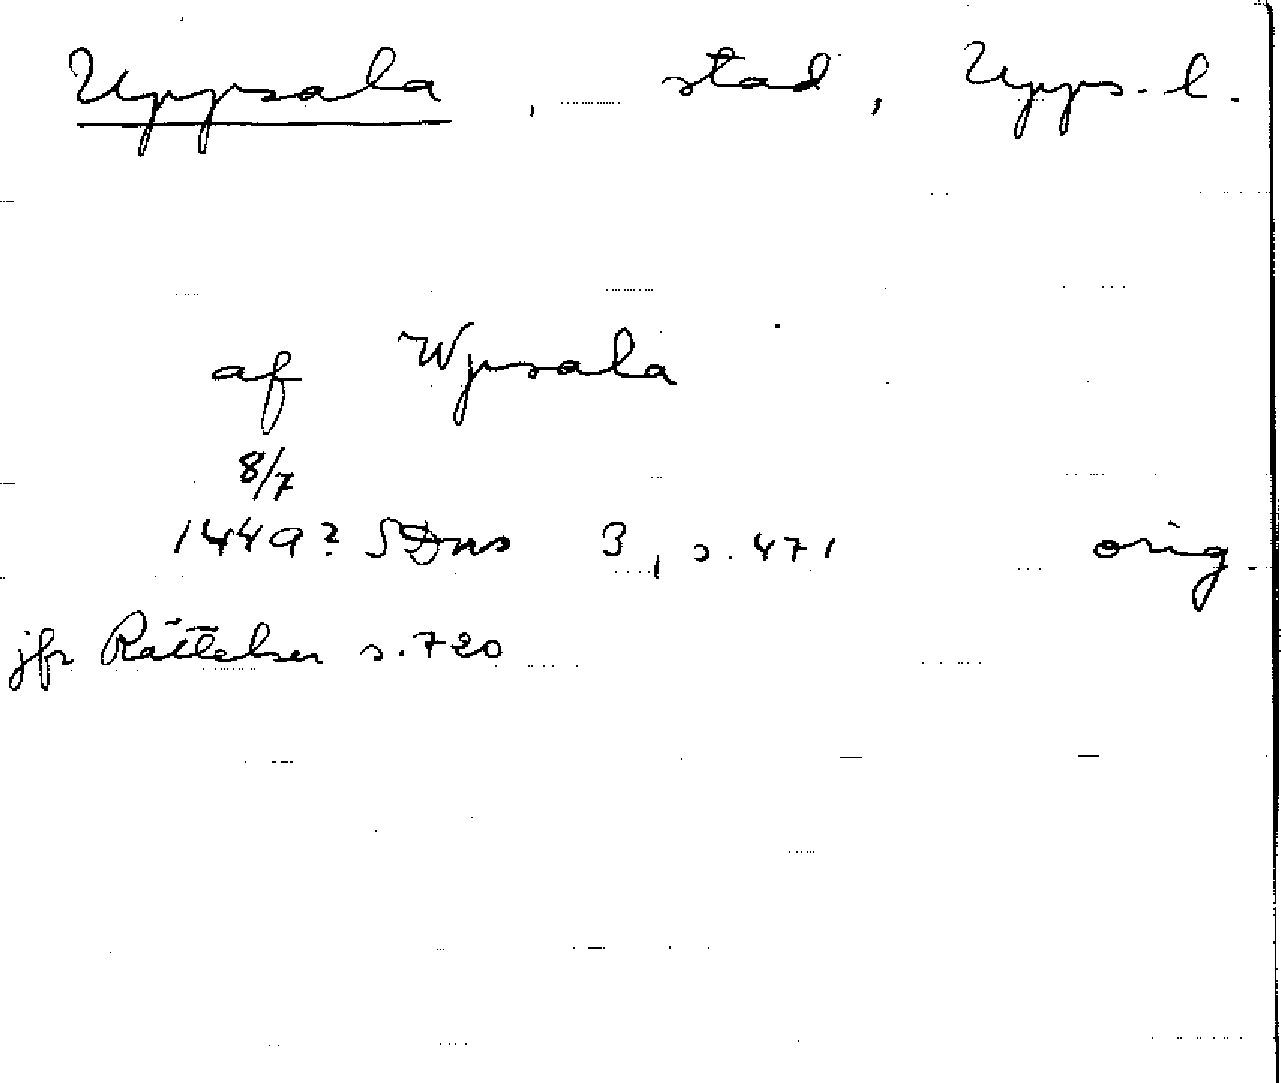 Uppsala, stad, Upps. l.
af Wpsala
8/7
1449? SDns 3, s. 471 orig.
jfr Rättelser s. 720